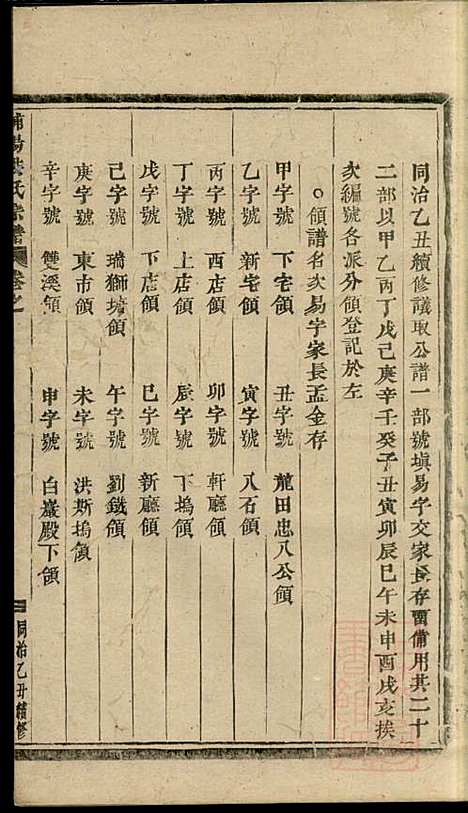 同治乙丑續修議取公譜一部號塡易字交家長存畱備用其二十
二部以甲乙丙丁戊己庚辛壬癸子丑寅卯辰巳午未申酉戌亥挨
次編號各派分領登記於左
○領譜名次易字家長孟金存
甲字號 下宅領 丑字號 龍田忠八公領
乙字號 新宅領 寅字號 八石領
丙字號 西店領 卯字號 軒廳領
丁字號 上店領 辰字號 下塢領
戊字號 下店領 巳字號 新廳領
己字號 瑞獅塘領 午字號 劉錢領
庚字號 東市領 未字號 洪斯塢領
辛字號 雙溪領 申字號 白巖殿下領
氏宗譜 卷之
同治乙丑續修